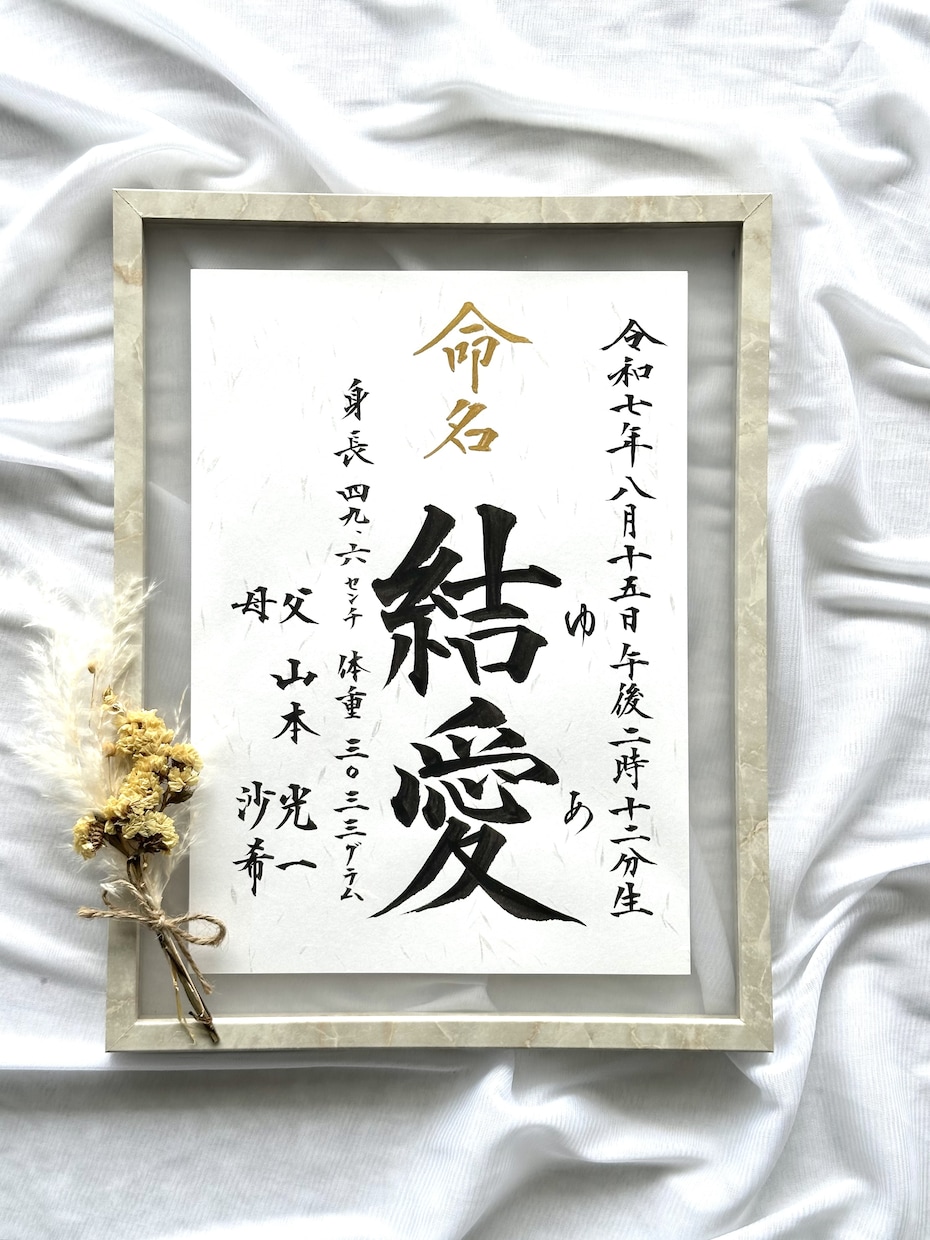 令和七年八月十五日午後二時十二分生
命名
結愛
ゆあ
身長 四九.六センチ 体重 三〇三三グラム
父 山本 光一
母 沙希